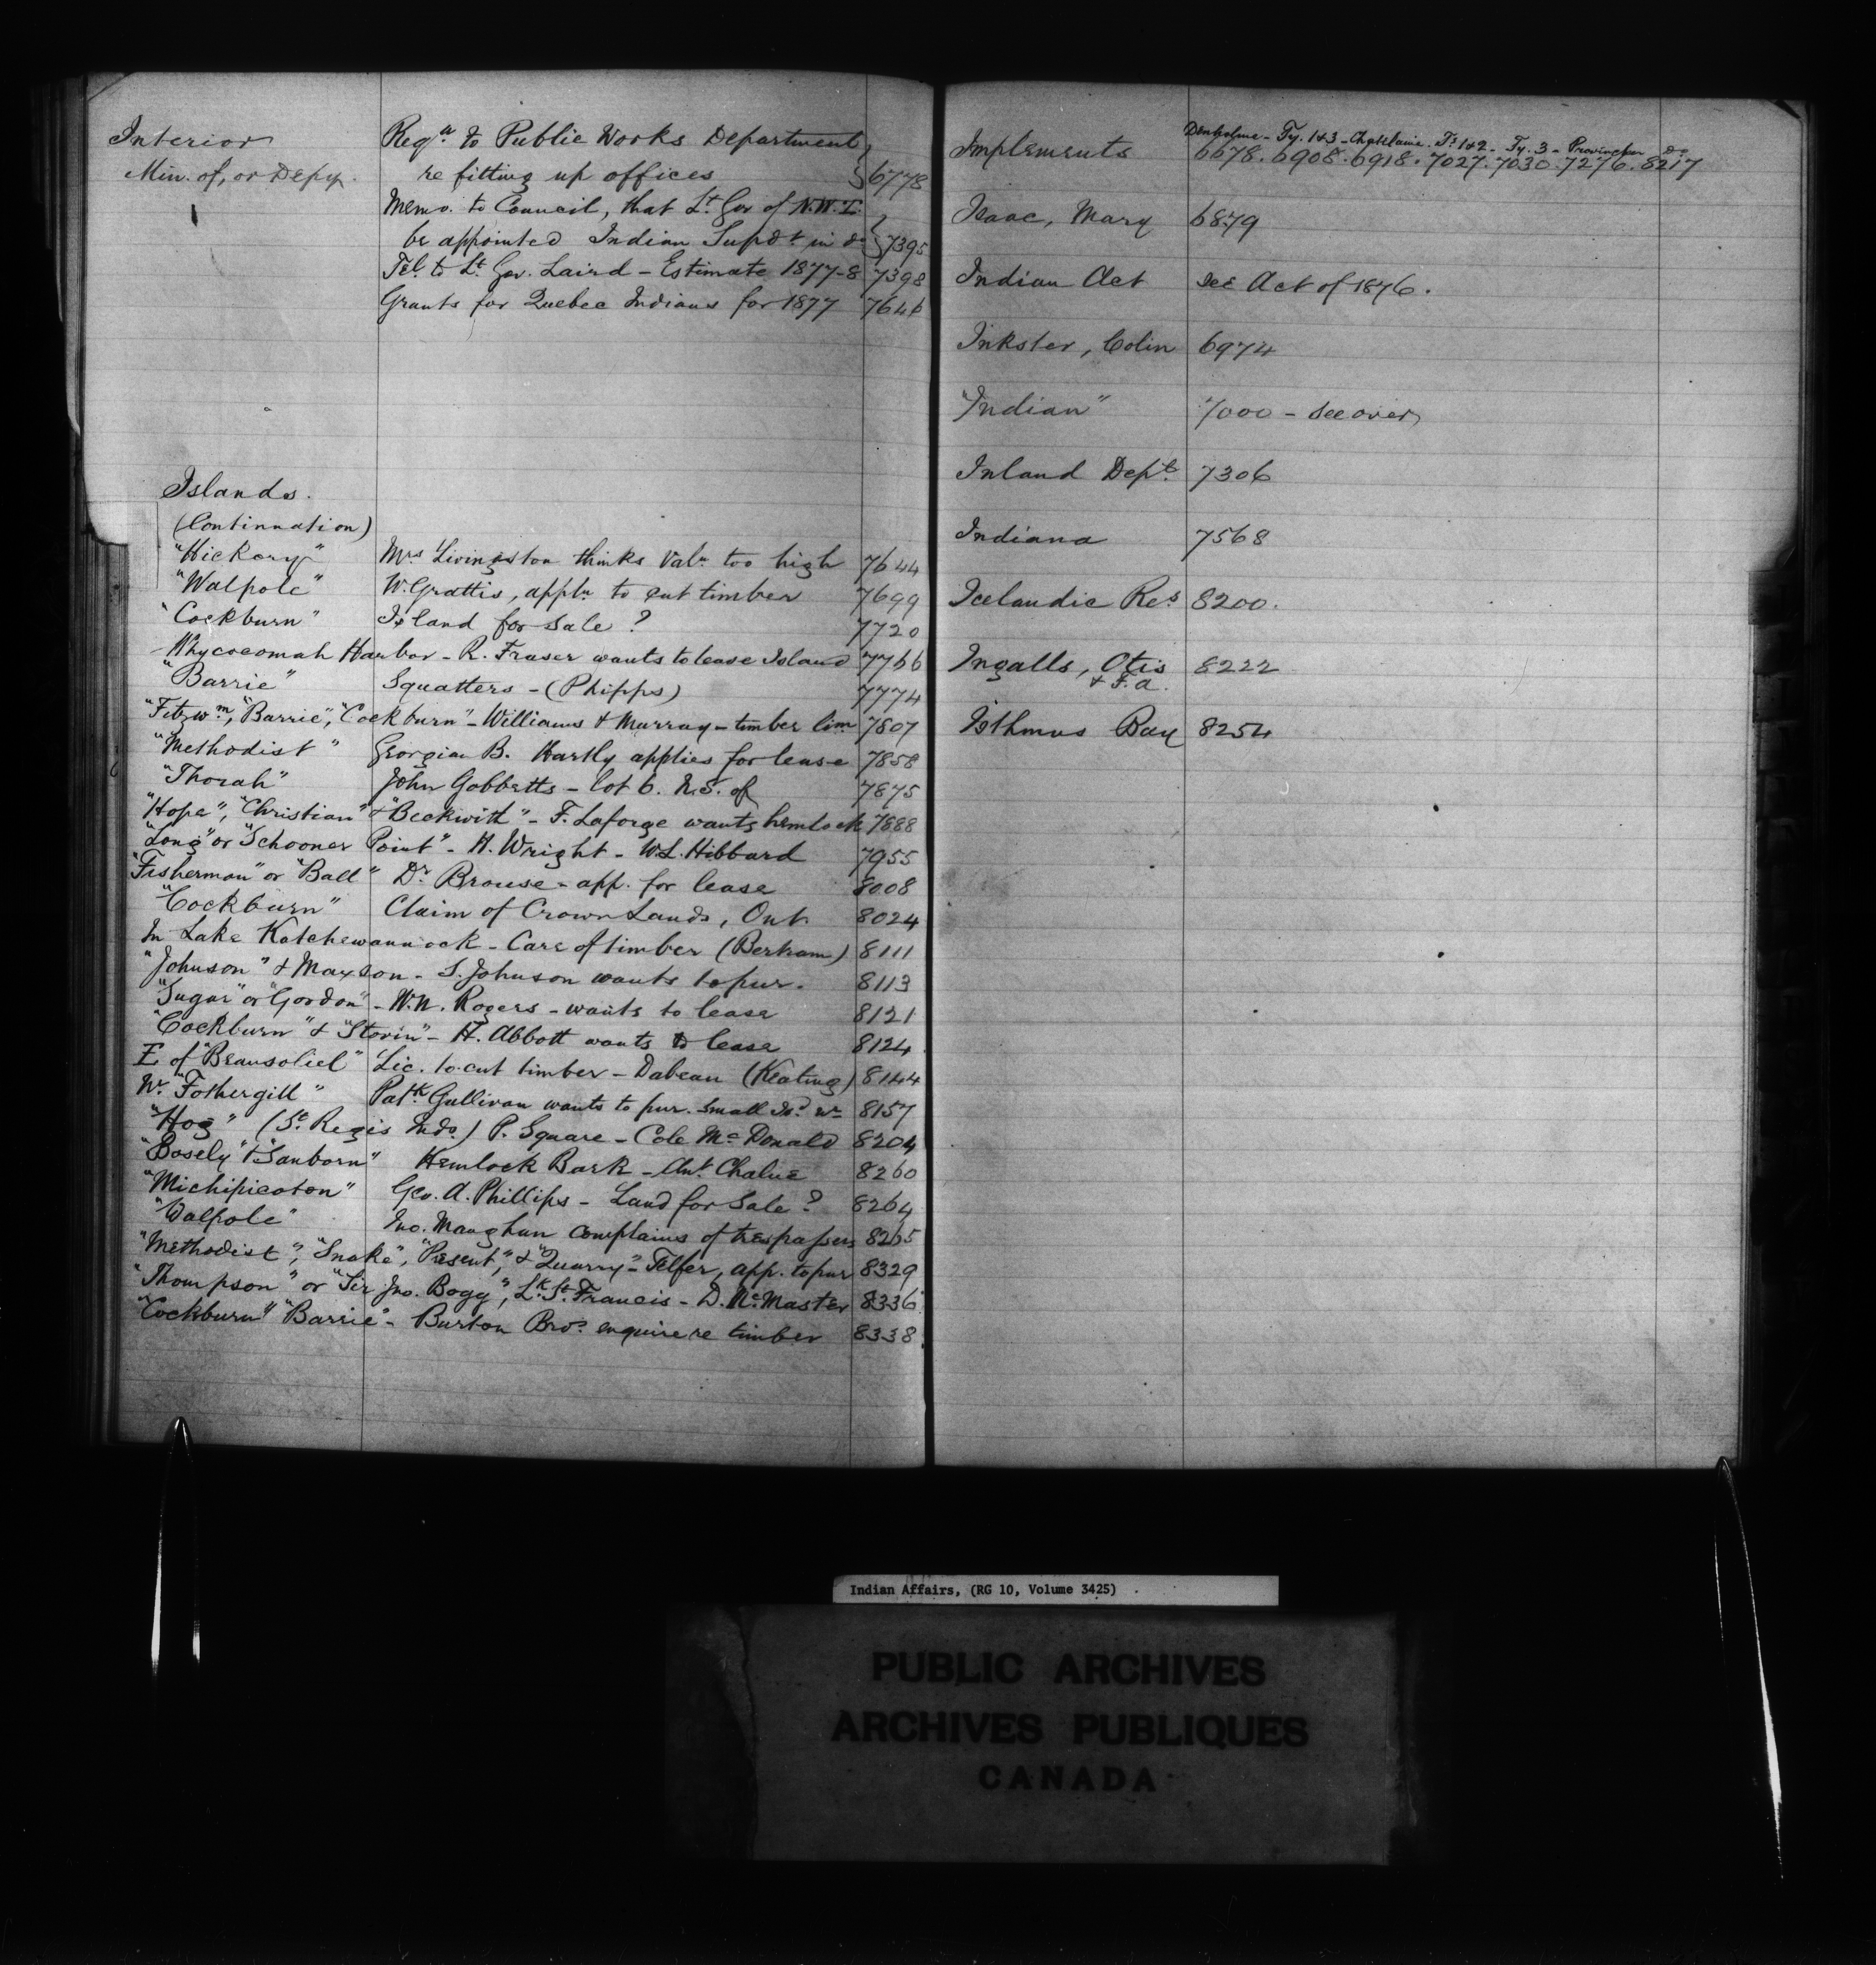 Interior Reqn to Public Works Department
Min. of, or Depy. re fitting up offices 6778
Memo. to Council, that Lt. Gov of N.W.T.
be appointed Indian Supdt in do 7395
Tel. to Lt. Gov. Laird - Estimate 1877-8 7398
Grants for Quebec Indians for 1877 7646
Islands.
(Continuation)
"Hickory" Mrs Livingston thinks Valn too high 7644
"Walpole" W. Grattis, appln to cut timber 7699
"Cockburn" Island for sale? 7720
Whycocomah Harbor - R. Fraser wants to lease Island 7766
"Barrie" Squatters - (Phipps) 7774
"Fitzwm", "Barrie", "Cockburn" - Williams & Murray - timber lim 7807
"Methodist" Georgian B. Hartly applies for lease 7858
"Thorah" John Gobbetts - lot 6. N.S. of 7875
"Hope", "Christian" & "Beckwith" - F. Laforge wants hemlock 7888
"Long" or "Schooner Point" - H. Wright - W.L. Hibbard 7955
"Fisherman" or "Ball" Dr Brouse - app. for lease 8008
"Cockburn" Claim of Crown Lands, Ont. 8024
In Lake Katchewannock - Care of timber (Bertram) 8111
"Johnson" & Maxson - S. Johnson wants to pur. 8113
"Sugar" or "Gordon" - W.N. Rogers - wants to lease 8121
"Cockburn" & "Storin" - H. Abbott wants to lease 8124
E of "Beausoliel" Lic. to cut timber - Dabeau (Keating) 8144
Wr "Fothergill" Patk Gullivan wants to pur. small Isd 8157
"Hog" (St. Regis Inds) P. Square - Cole McDonald 8204
"Bosely" & "Sanborn" Hemlock Bark - Ant. Chalue 8260
"Michipicoton" Geo. A. Phillips - Land for Sale? 8264
"Walpole" Jno. Maughan complains of trespassers 8265
"Methodist", "Snake", "Present", & "Quarry" - Telfer, app. to pur 8329
"Thompson" or "Sir Jno. Bogy", Lk. St. Francis - D. McMaster 8336
"Cockburn" "Barrie" - Burton Bros. enquire re timber 8338
Denholme - Ty. 1&3 - Chatelaine. Ts. 1&2 - Ty. 3 - Provencher do
Implements 6678. 6908. 6918. 7027. 7030. 7276. 8217
Isaac, Mary 6879
Indian Act see Act of 1876.
Inkster, Colin 6974
"Indian" 7000 - see over
Inland Dept. 7306
Indiana 7568
Icelandic Res 8200.
Ingalls, Otis 8222
& F.A.
Isthmus Bay 8254
Indian Affairs, (RG 10, Volume 3425)
PUBLIC ARCHIVES
ARCHIVES PUBLIQUES
CANADA